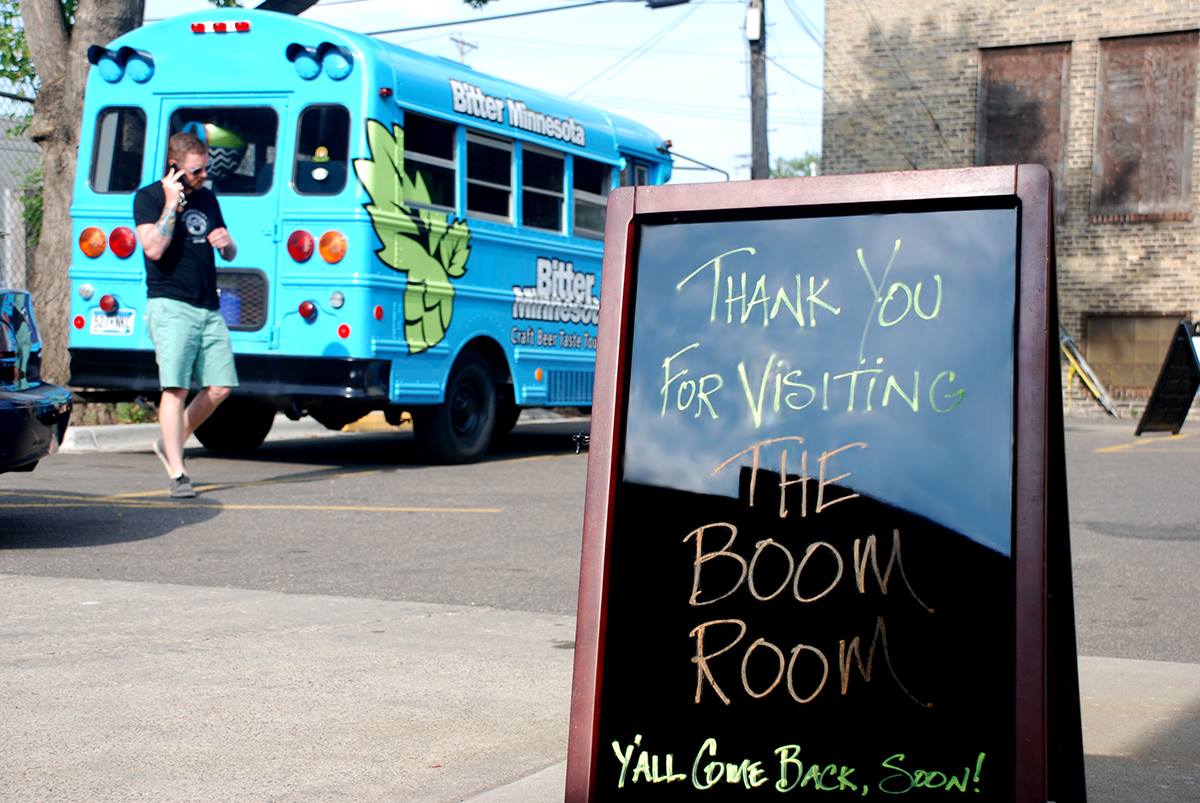 Bitter Minnesota
Bitter
Minnesota
Craft Beer Taste
THANK YOU
FOR VISITING
THE
BOOM
ROOM
Y'ALL COME BACK, SOON!